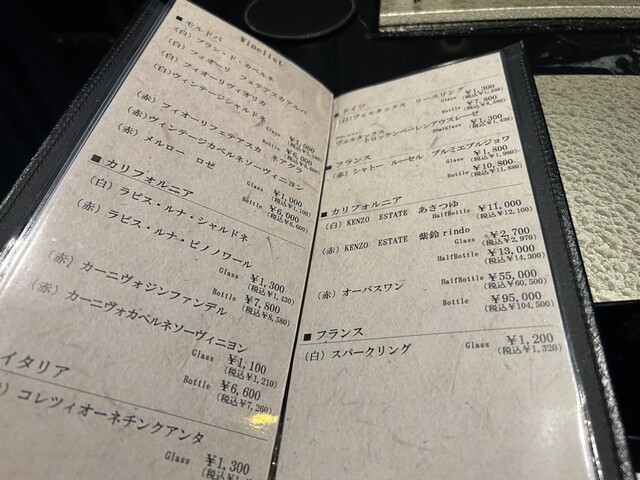 Winelist
■ モルドバ
(白) フラン・ド・カベルネ
(白) フィオーリ フェテアスカアルバ
(白) フィオーリヴィオリカ
(白) ヴィンテージシャルドネ
Glass ¥1,000
(税込¥1,100)
Bottle ¥6,000
(税込¥6,600)
(赤) フィオーリフェテアスカ ネアグラ
(赤) ヴィンテージカベルネソーヴィニヨン
(赤) メルロー ロゼ
Glass ¥1,000
(税込¥1,100)
Bottle ¥6,000
(税込¥6,600)
■ カリフォルニア
(白) ラピス・ルナ・シャルドネ
(赤) ラピス・ルナ・ピノノワール
Glass ¥1,300
(税込¥1,430)
Bottle ¥7,800
(税込¥8,580)
(赤) カーニヴォジンファンデル
(赤) カーニヴォカベルネソーヴィニヨン
Glass ¥1,100
(税込¥1,210)
Bottle ¥6,600
(税込¥7,260)
イタリア
コレツィオーネチンクアンタ
Glass ¥1,300
ドイツ
(白) リースリング
Glass ¥1,300
Bottle ¥7,800
(税込¥8,580)
トロッケンベーレンアウスレーゼ
Glass ¥1,300
(税込¥1,430)
フランス
(赤) シャトー ルーセル プルミエブルジョワ
Glass ¥1,800
(税込¥1,980)
Bottle ¥10,800
(税込¥11,880)
■ カリフォルニア
(白) KENZO ESTATE あさつゆ
HalfBottle ¥11,000
(税込¥12,100)
(赤) KENZO ESTATE 紫鈴 rindo
Glass ¥2,700
(税込¥2,970)
HalfBottle ¥13,000
(税込¥14,300)
(赤) オーパスワン HalfBottle ¥55,000
(税込¥60,500)
Bottle ¥95,000
(税込¥104,500)
■ フランス
(白) スパークリング Glass ¥1,200
(税込¥1,320)